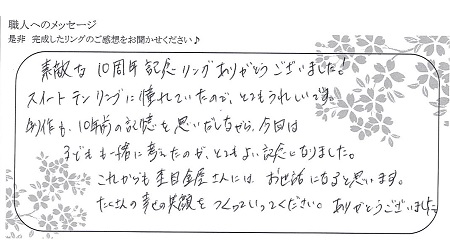 職人へのメッセージ
是非 完成したリングのご感想をお聞かせください♪
素敵な10周年記念リングありがとうございました!
スイートテンリングに憧れていたので、とてもうれしいです。
制作も、10年前の記憶を思いだしながら、今回は
子どもも一緒に考えたのが、とてもよい記念になりました。
これからも杢目金屋さんには お世話になると思います。
たくさんの幸せの笑顔を つくっていってください。 ありがとうございました